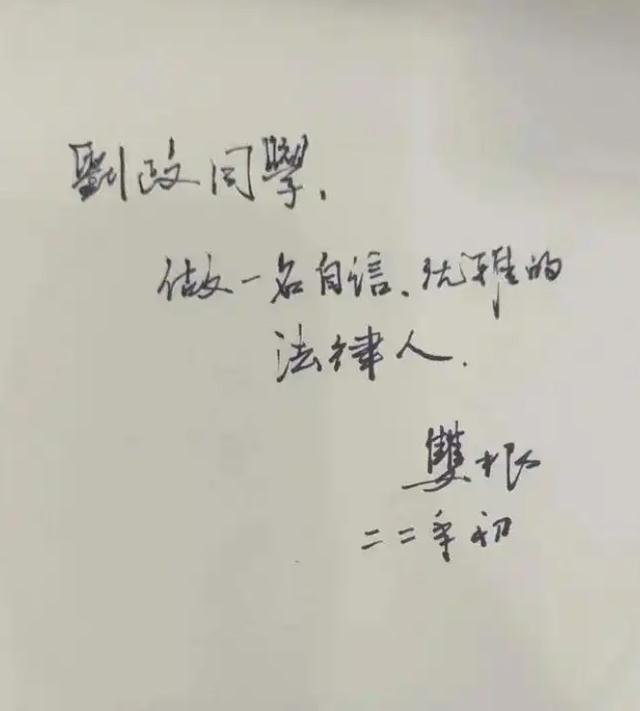 劉政同學，
做一名自信、优雅的
法律人．
雙根
二二年初